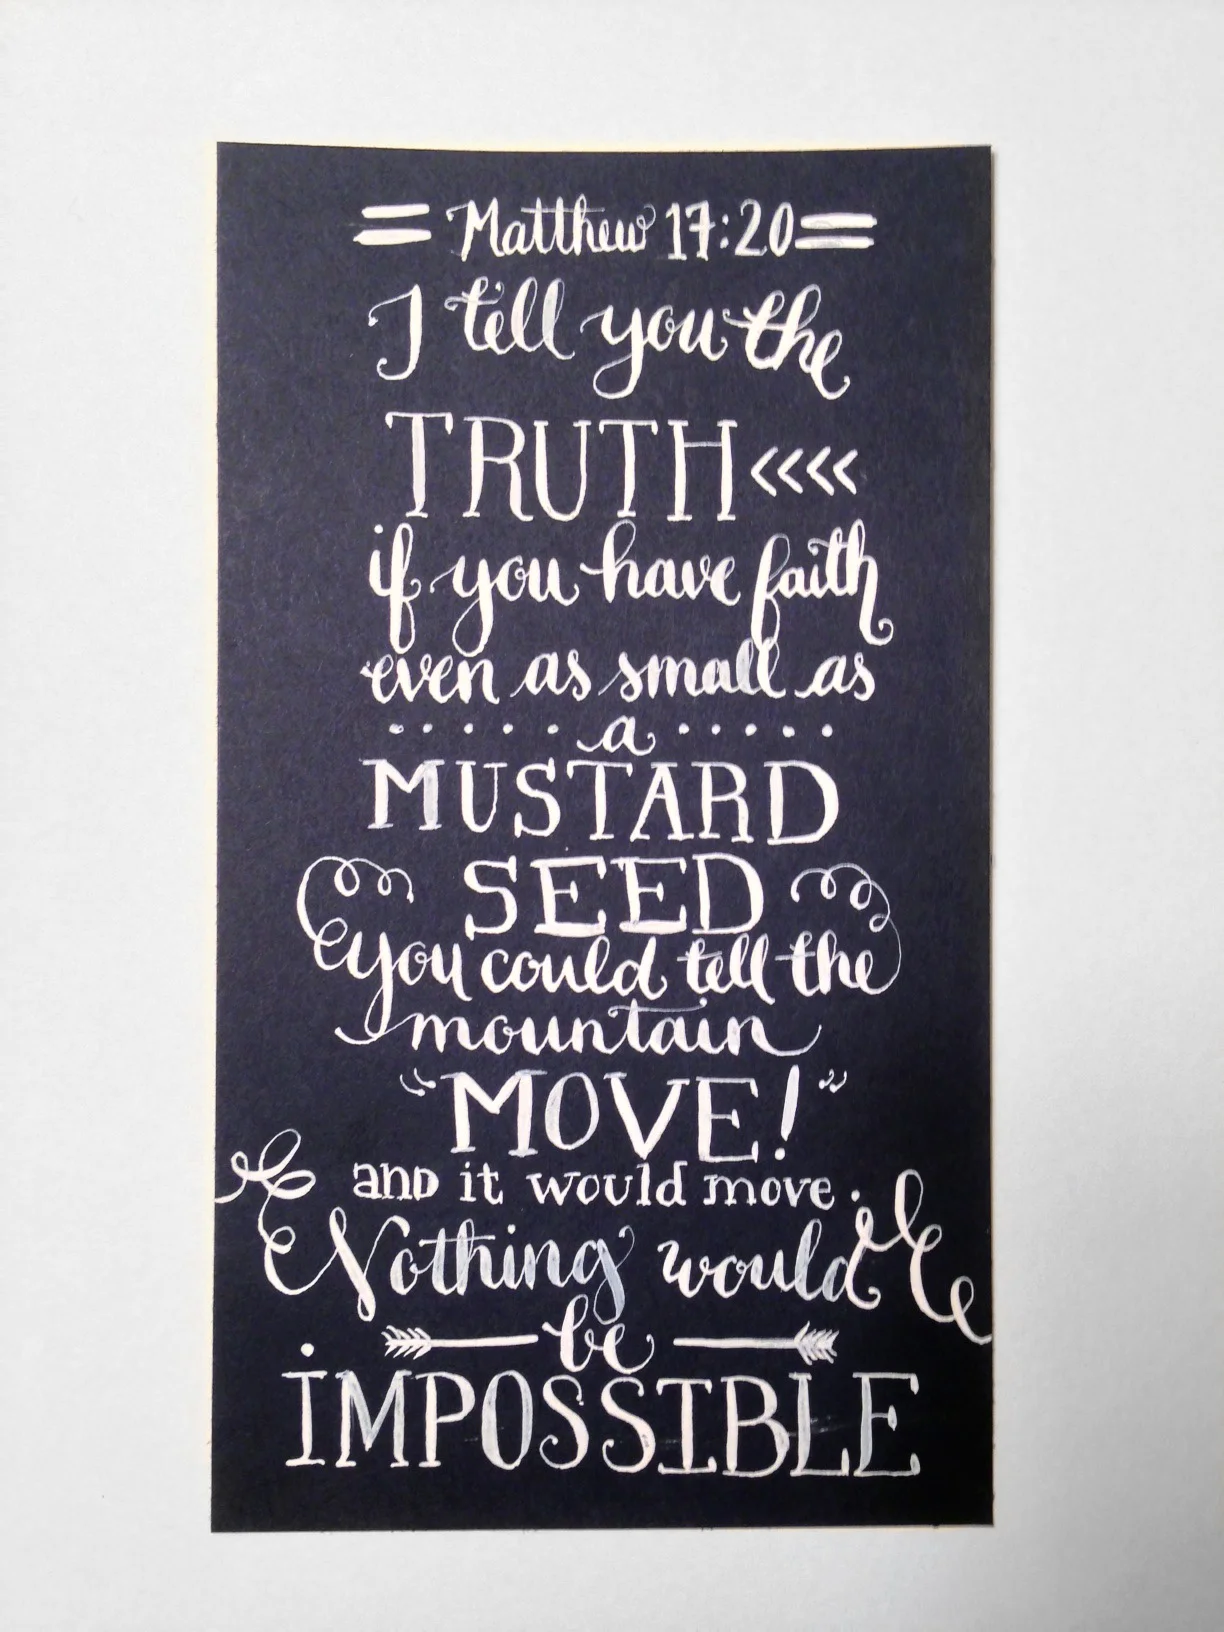 Matthew 17:20
I tell you the
TRUTH <<<<
if you have faith
even as small as
a
MUSTARD
SEED
you could tell the
mountain
"MOVE!"
and it would move.
Nothing would
be
iMPOSSIBLE